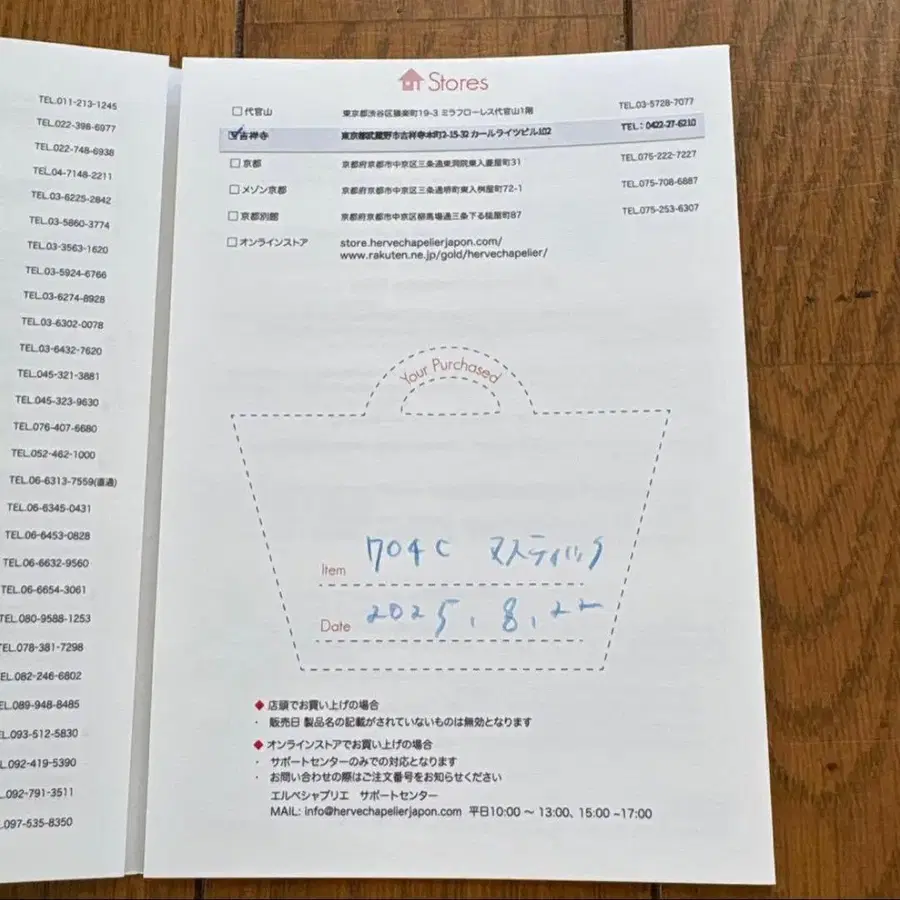 TEL.011-213-1245
TEL.022-398-6977
TEL.022-748-6938
TEL.04-7148-2211
TEL.03-6225-2842
TEL.03-5860-3774
TEL.03-3563-1620
TEL.03-5924-6766
TEL.03-6274-8928
TEL.03-6302-0078
TEL.03-6432-7620
TEL.045-321-3881
TEL.045-323-9630
TEL.076-407-6680
TEL.052-462-1000
TEL.06-6313-7559(直通)
TEL.06-6345-0431
TEL.06-6453-0828
TEL.06-6632-9560
TEL.06-6654-3061
TEL.080-9588-1253
TEL.078-381-7298
EL.082-246-6802
EL.089-948-8485
EL.093-512-5830
.092-419-5390
.092-791-3511
.097-535-8350
Stores
代官山 東京都渋谷区猿楽町19-3 ミラフローレス代官山1階 TEL.03-5728-7077
吉祥寺 東京都武蔵野市吉祥寺本町2-15-32 カールライツビル102 TEL:0422-27-6210
京都 京都府京都市中京区三条通東洞院東入菱屋町31 TEL.075-222-7227
メゾン京都 京都府京都市中京区三条通堺町東入桝屋町72-1 TEL.075-708-6887
京都別館 京都府京都市中京区柳馬場通三条下る槌屋町87 TEL.075-253-6307
オンラインストア store.hervechapelierjapon.com/
www.rakuten.ne.jp/gold/hervechapelier/
Your Purchased
Item 704C マスティック
Date 2025.8.22
◆ 店頭でお買い上げの場合
・ 販売日 製品名の記載がされていないものは無効となります
◆ オンラインストアでお買い上げの場合
・ サポートセンターのみでの対応となります
・ お問い合わせの際はご注文番号をお知らせください
エルベシャプリエ サポートセンター
MAIL: info@hervechapelierjapon.com 平日10:00 〜 13:00、15:00 ~17:00